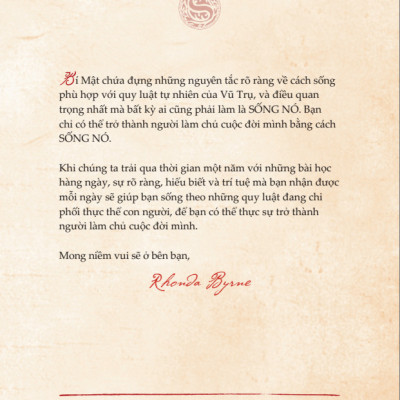 Bí Mật chứa đựng những nguyên tắc rõ ràng về cách sống
phù hợp với quy luật tự nhiên của Vũ Trụ, và điều quan
trọng nhất mà bất kỳ ai cũng phải làm là SỐNG NÓ. Bạn
chỉ có thể trở thành người làm chủ cuộc đời mình bằng cách
SỐNG NÓ.
Khi chúng ta trải qua thời gian một năm với những bài học
hàng ngày, sự rõ ràng, hiểu biết và trí tuệ mà bạn nhận được
mỗi ngày sẽ giúp bạn sống theo những quy luật đang chi
phối thực thể con người, để bạn có thể thực sự trở thành
người làm chủ cuộc đời mình.
Mong niềm vui sẽ ở bên bạn,
Rhonda Byrne